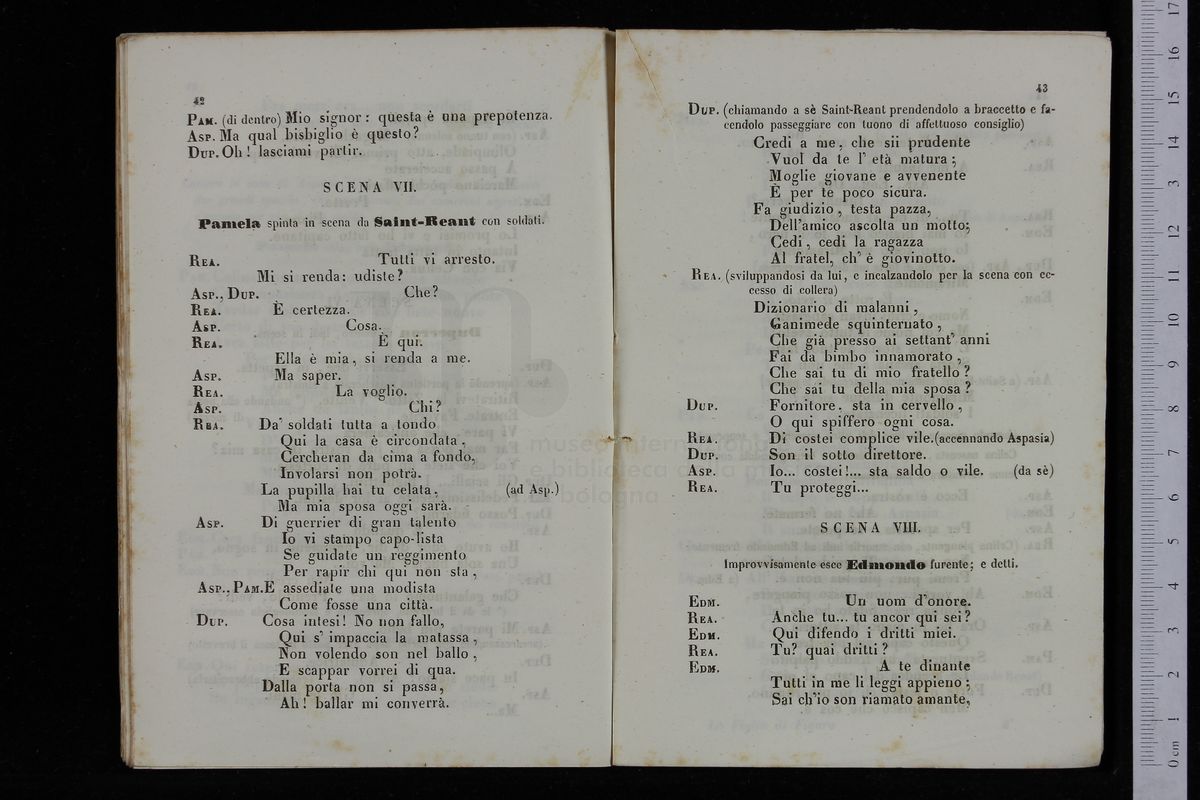 42
PAM. (di dentro) Mio signor : questa è una prepotenza.
ASP. Ma qual bisbiglio è questo?
DUP. Oh! lasciami partir.
SCENA VII.
Pamela spinta in scena da Saint-Reant con soldati.
REA. Tutti vi arresto.
Mi si renda: udiste?
ASP., DUP. Che?
REA. È certezza.
ASP. Cosa.
REA. È qui.
Ella è mia, si renda a me.
ASP. Ma saper.
REA. La voglio.
ASP. Chi?
REA. Da' soldati tutta a tondo
Qui la casa è circondata,
Cercheran da cima a fondo,
Involarsi non potrà.
La pupilla hai tu celata, (ad Asp.)
Ma mia sposa oggi sarà.
ASP. Di guerrier di gran talento
Io vi stampo capo-lista
Se guidate un reggimento
Per rapir chi qui non sta,
ASP., PAM. E assediate una modista
Come fosse una città.
DUP. Cosa intesi! No non fallo,
Qui s' impaccia la matassa,
Non volendo son nel ballo,
E scappar vorrei di qua.
Dalla porta non si passa,
Ah! ballar mi converrà.
43
DUP. (chiamando a sè Saint-Reant prendendolo a braccetto e fa-
cendolo passeggiare con tuono di affettuoso consiglio)
Credi a me, che sii prudente
Vuol da te l' età matura;
Moglie giovane e avvenente
È per te poco sicura.
Fa giudizio, testa pazza,
Dell'amico ascolta un motto;
Cedi, cedi la ragazza
Al fratel, ch' è giovinotto.
REA. (sviluppandosi da lui, e incalzandolo per la scena con ec-
cesso di collera)
Dizionario di malanni,
Ganimede squinternato,
Che già presso ai settant' anni
Fai da bimbo innamorato,
Che sai tu di mio fratello?
Che sai tu della mia sposa?
DUP. Fornitore, sta in cervello,
O qui spiffero ogni cosa.
REA. Di costei complice vile. (accennando Aspasia)
DUP. Son il sotto direttore.
ASP. Io... costei!... sta saldo o vile. (da sè)
REA. Tu proteggi...
SCENA VIII.
Improvvisamente esce Edmondo furente; e detti.
EDM. Un uom d'onore.
REA. Anche tu... tu ancor qui sei?
EDM. Qui difendo i dritti miei.
REA. Tu? quai dritti?
EDM. A te dinante
Tutti in me li leggi appieno;
Sai ch'io son riamato amante,
museo internazionale
e biblioteca della musica
di bologna
0 cm 1 2 3 4 5 6 7 8 9 10 11 12 13 14 15 16 17